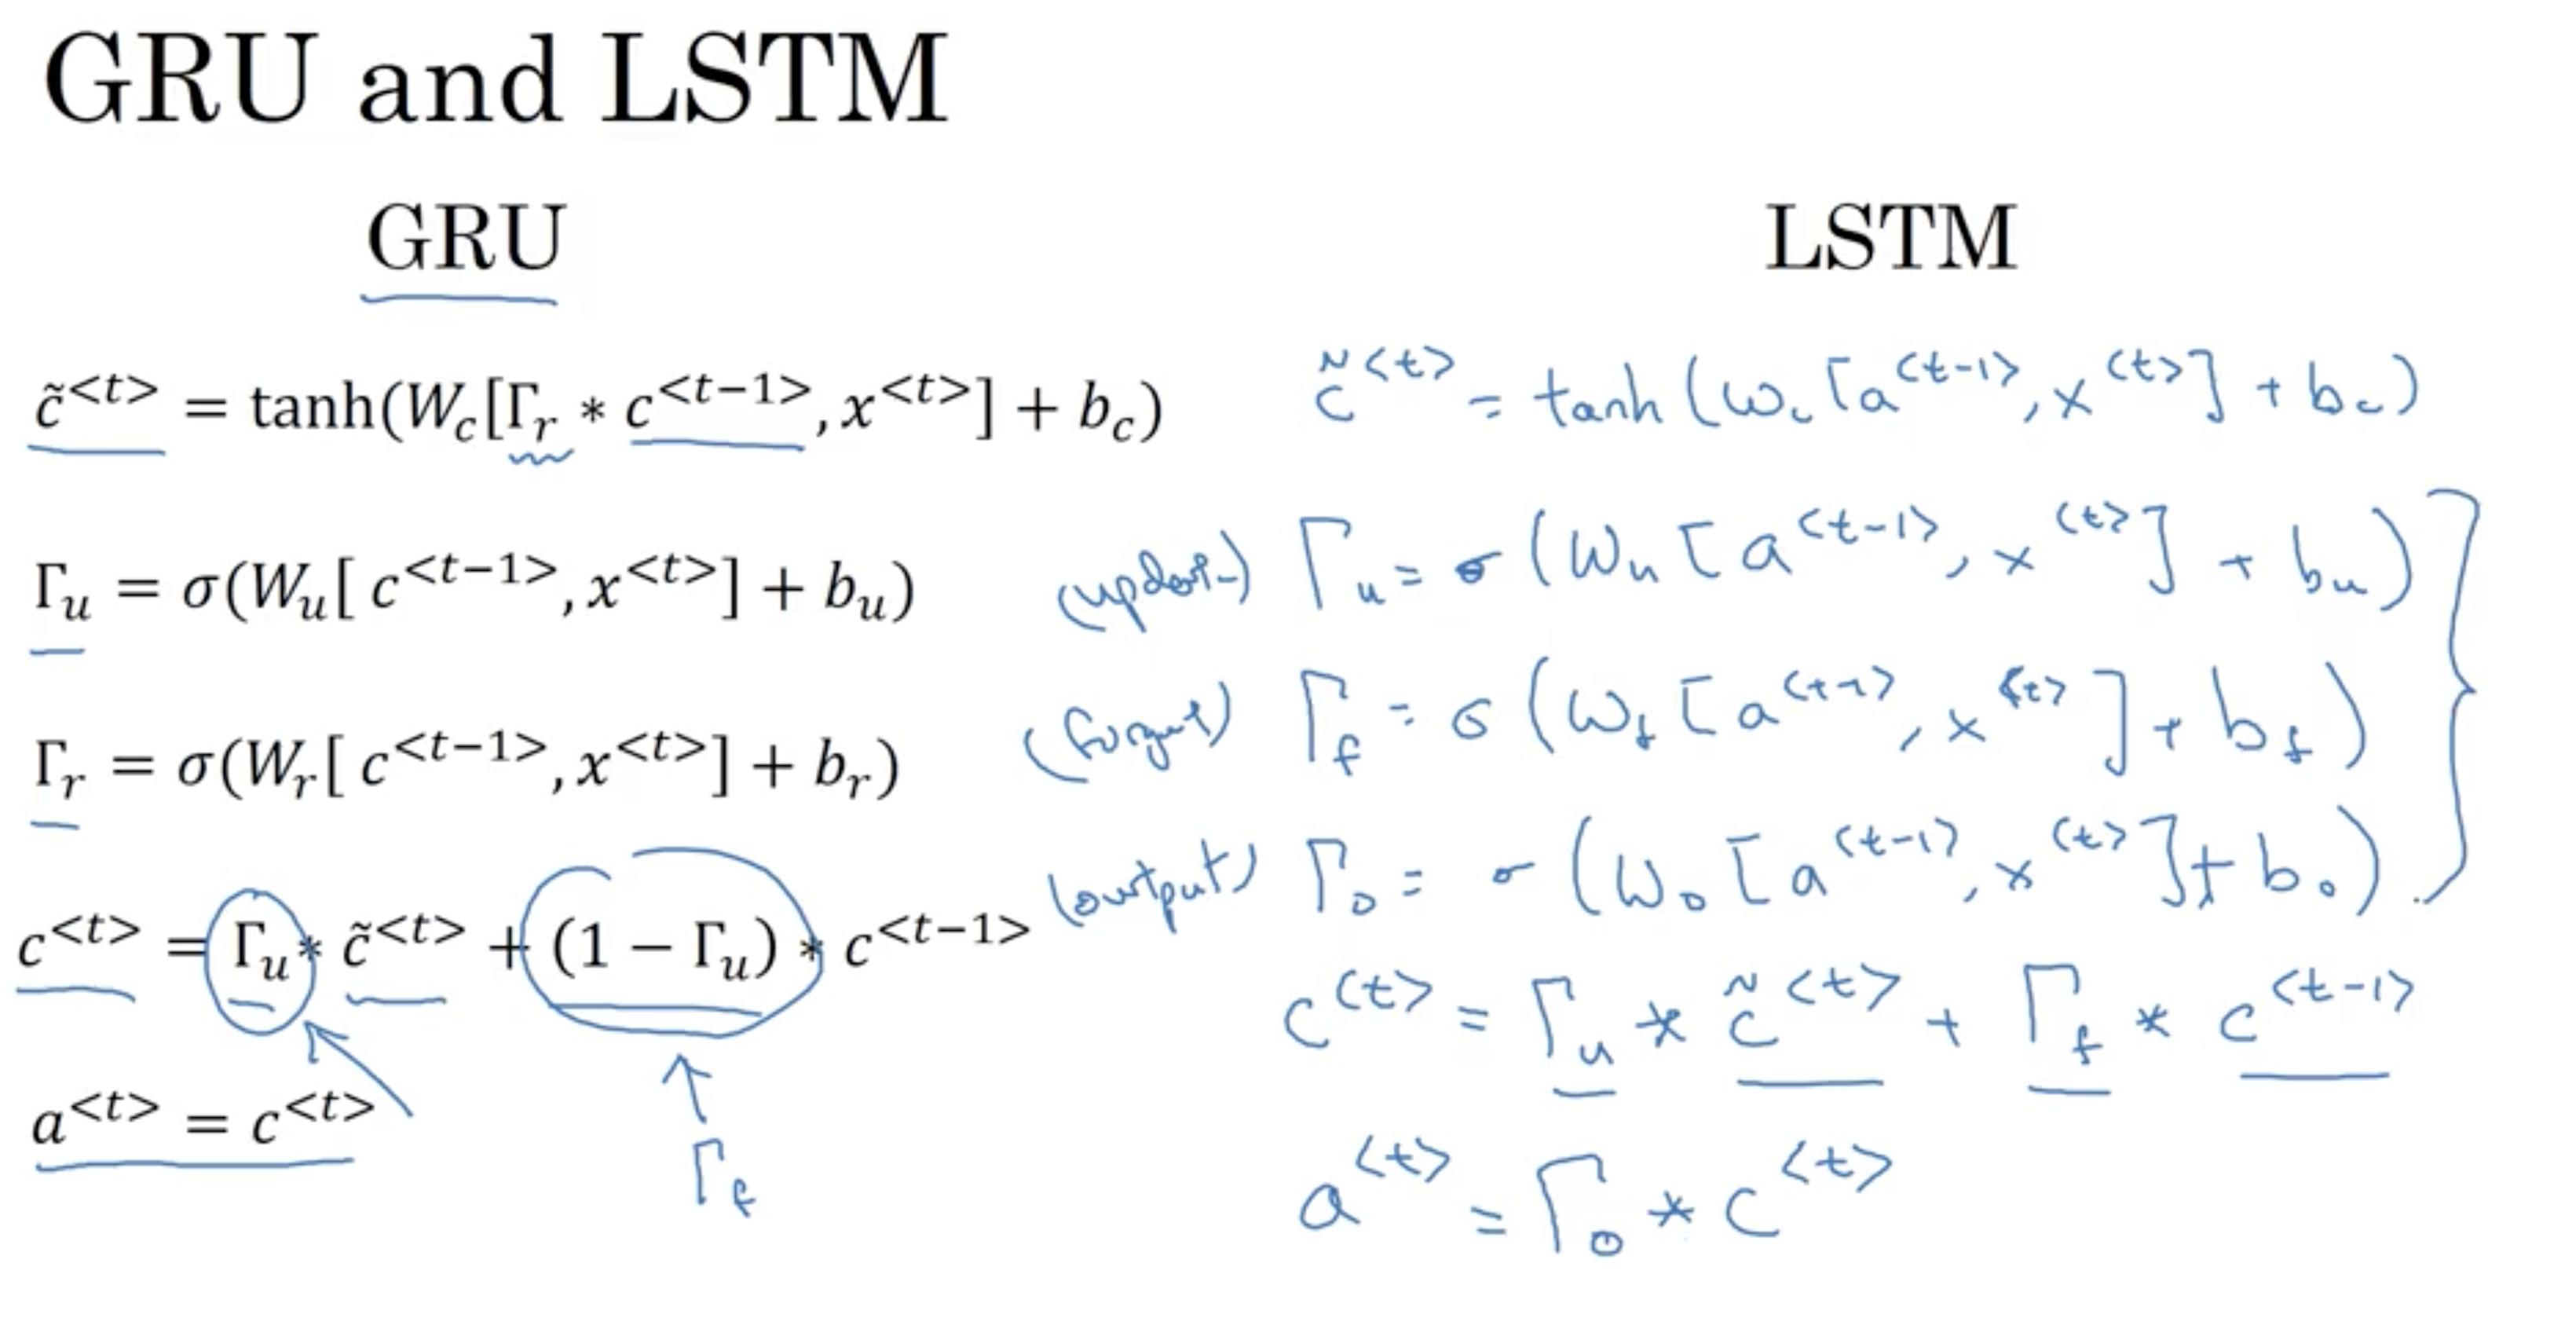 GRU and LSTM
GRU
c̃<t> = tanh(W_c[Γ_r * c<t−1>, x<t>] + b_c)
Γ_u = σ(W_u[ c<t−1>, x<t>] + b_u)
Γ_r = σ(W_r[ c<t−1>, x<t>] + b_r)
c<t> = Γ_u * c̃<t> + (1 − Γ_u) * c<t−1>
a<t> = c<t>
Γ_f
LSTM
c̃<t> = tanh(W_c[a<t-1>, x<t>] + b_c)
(update) Γ_u = σ(W_u[a<t-1>, x<t>] + b_u)
(forget) Γ_f = σ(W_f[a<t-1>, x<t>] + b_f)
(output) Γ_o = σ(W_o[a<t-1>, x<t>] + b_o)
c<t> = Γ_u * c̃<t> + Γ_f * c<t-1>
a<t> = Γ_o * c<t>